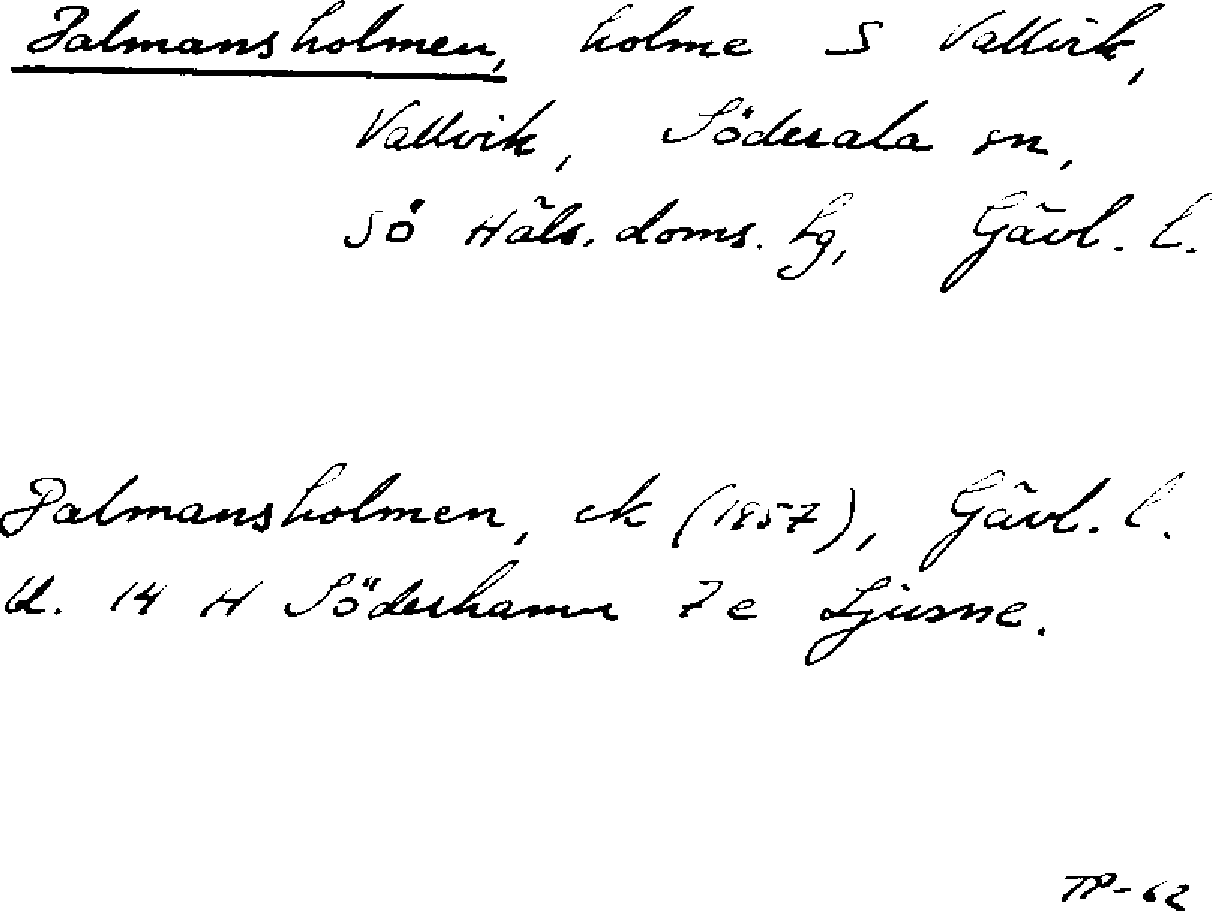 Palmansholmen, holme S Vallvik,
Vallvik, Söderala sn,
Sö Häls. doms. lg, Gävl. l.
Palmansholmen, ek (1957), Gävl. l.
bl. 14 H Söderhamn 7 e Ljusne.
TP-62